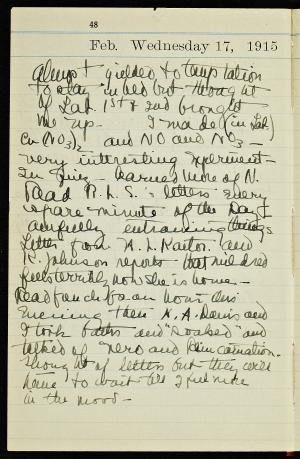 48
Feb. Wednesday 17, 1915
Almost yielded to temptation
to stay in bed but thought
of Lab. 1st & 2nd brought
me up. I made (in Lab)
Cu NO3)2 and NO and NO3 -
very interesting experiment -
In Eng. learned more of N.
Read R. L. S.'s letters every
spare minute of the Day &
awfully entraining things
Letter from H. L. and
K. Johnson reports that mildred
feels terribly now she is home -
Read for an hour this
Evening then K. A. Davis and
I took baths and "Soaked" and
talked of Nero and Reincarnation.
Thought of letters but they will
have to wait till I feel more
in the mood -